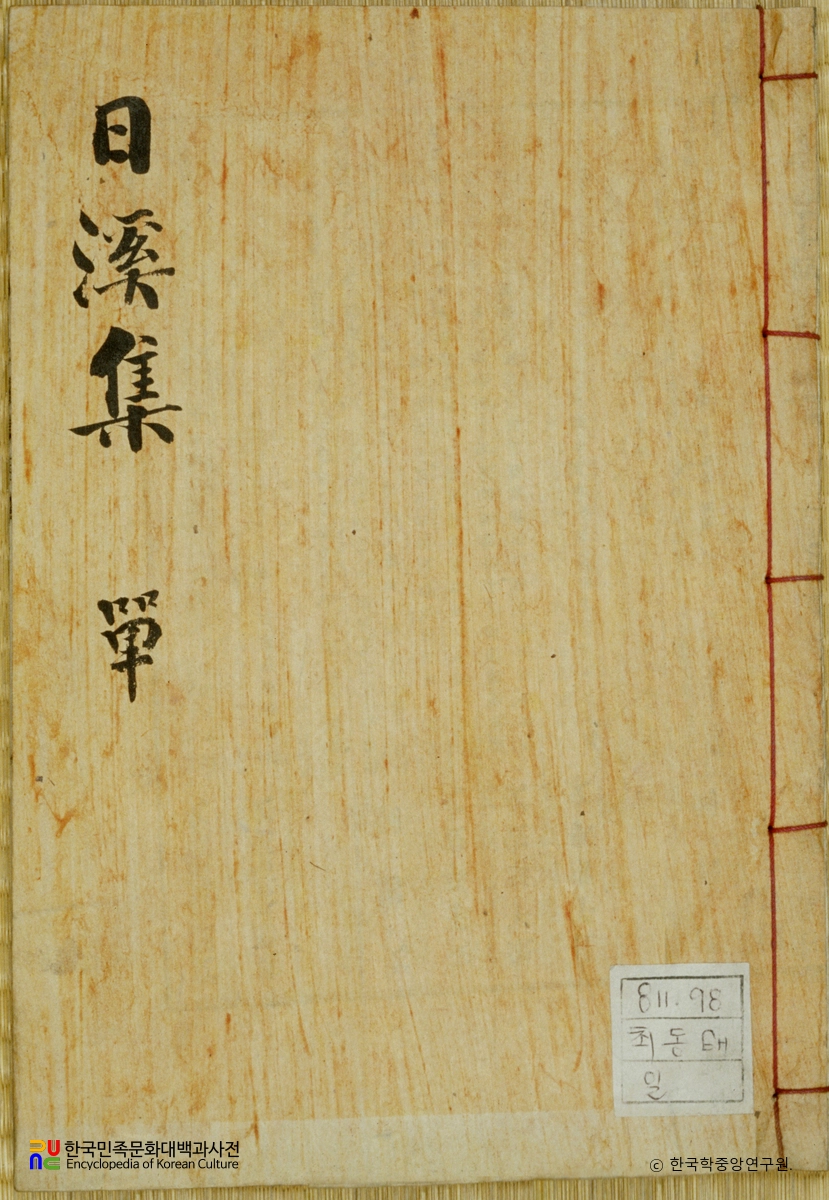 日溪集 單
811.98
최동
일
한국민족문화대백과사전
Encyclopedia of Korean Culture
© 한국학중앙연구원.